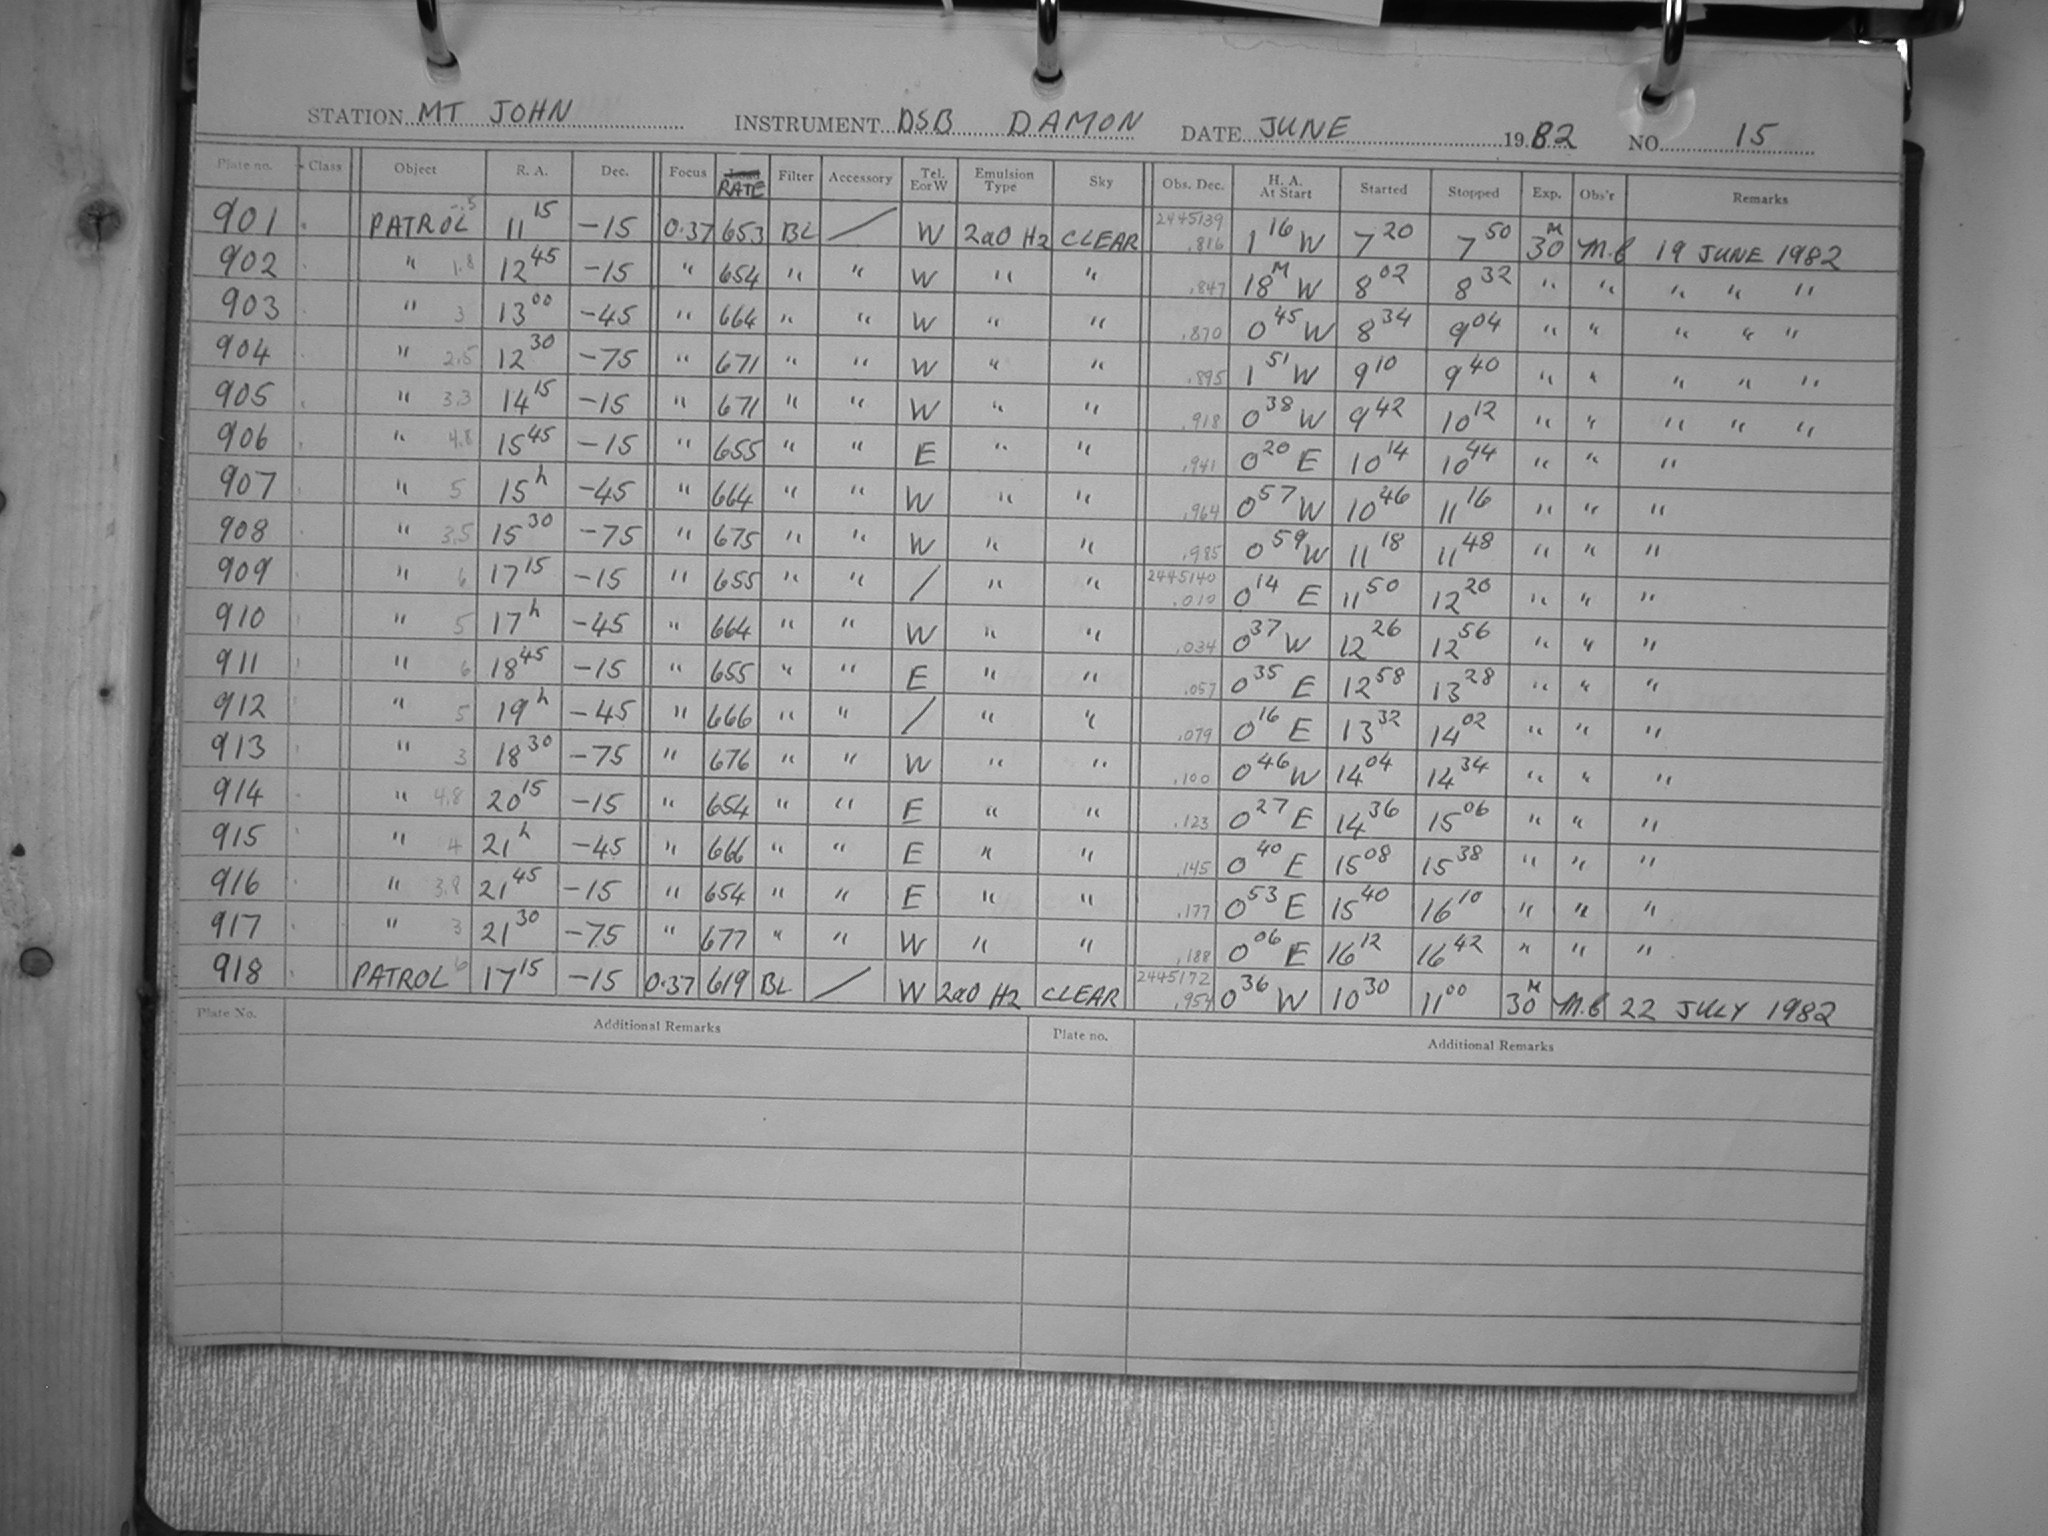 STATION MT JOHN INSTRUMENT DSB DAMON DATE JUNE 1982 NO. 15
Plate no. Class Object R. A. Dec. Focus RATE Filter Accessory Tel. E or W Emulsion Type Sky Obs. Dec. H. A. At Start Started Stopped Exp. Obs'r Remarks
901 PATROL -.5 11 15 -15 0.37 653 BL / W 2a0 H2 CLEAR 2445139 .816 1 16 W 7 20 7 50 30 M M.C 19 JUNE 1982
902 " 1.8 12 45 -15 " 654 " " W " " .847 18 M W 8 02 8 32 " " " " "
903 " 3 13 00 -45 " 664 " " W " " .870 0 45 W 8 34 9 04 " " " " "
904 " 2.5 12 30 -75 " 671 " " W " " .895 1 51 W 9 10 9 40 " " " " "
905 " 3.3 14 15 -15 " 671 " " W " " .918 0 38 W 9 42 10 12 " " " " "
906 " 4.8 15 45 -15 " 655 " " E " " .941 0 20 E 10 14 10 44 " " "
907 " 5 15 h -45 " 664 " " W " " .964 0 57 W 10 46 11 16 " " "
908 " 3.5 15 30 -75 " 675 " " W " " .985 0 59 W 11 18 11 48 " " "
909 " 6 17 15 -15 " 655 " " / " " 2445140 .010 0 14 E 11 50 12 20 " " "
910 " 5 17 h -45 " 664 " " W " " .034 0 37 W 12 26 12 56 " " "
911 " 6 18 45 -15 " 655 " " E " " .057 0 35 E 12 58 13 28 " " "
912 " 5 19 h -45 " 666 " " / " " .079 0 16 E 13 32 14 02 " " "
913 " 3 18 30 -75 " 676 " " W " " .100 0 46 W 14 04 14 34 " " "
914 " 4.8 20 15 -15 " 654 " " E " " .123 0 27 E 14 36 15 06 " " "
915 " 4 21 h -45 " 666 " " E " " .145 0 40 E 15 08 15 38 " " "
916 " 3.8 21 45 -15 " 654 " " E " " .177 0 53 E 15 40 16 10 " " "
917 " 3 21 30 -75 " 677 " " W " " .188 0 06 E 16 12 16 42 " " "
918 PATROL 6 17 15 -15 0.37 619 BL / W 2a0 H2 CLEAR 2445172 .954 0 36 W 10 30 11 00 30 M 22 JULY 1982
Plate No. Additional Remarks Plate no. Additional Remarks